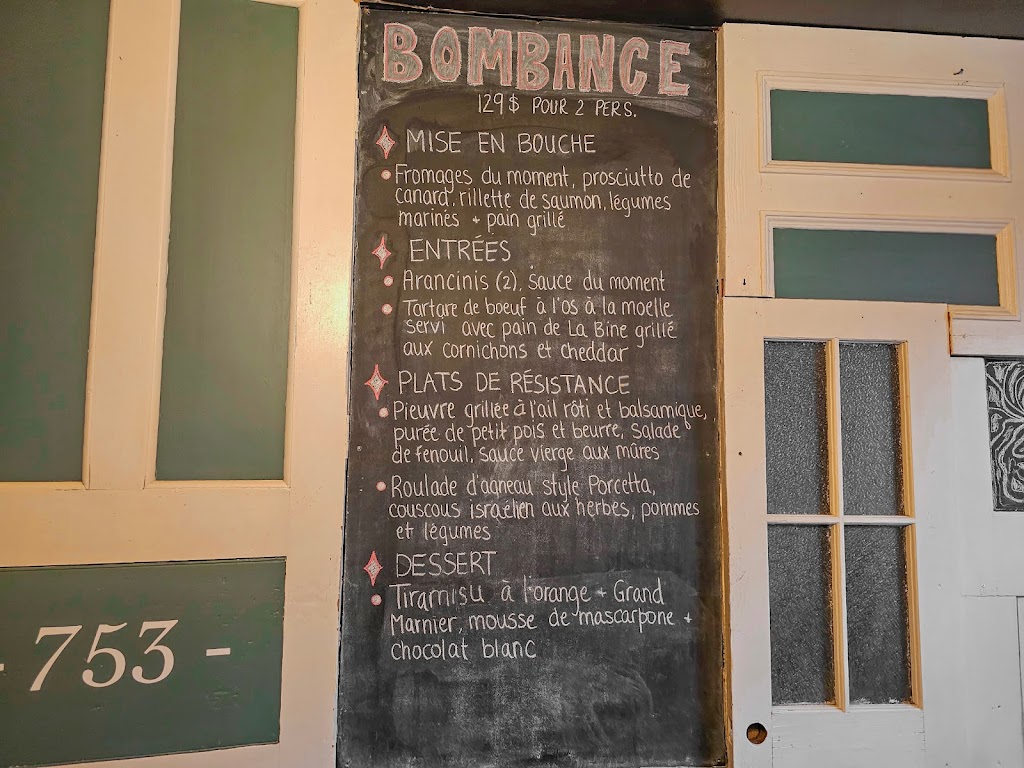 BOMBANCE
129$ POUR 2 PERS.
MISE EN BOUCHE
Fromages du moment, prosciutto de
canard, rillette de saumon, légumes
marinés + pain grillé
ENTRÉES
Arancinis (2), sauce du moment
Tartare de boeuf à l'os à la moelle
servi avec pain de La Bine grillé
aux cornichons et cheddar
PLATS DE RÉSISTANCE
Pieuvre grillée à l'ail rôti et balsamique,
purée de petit pois et beurre, salade
de fenouil, sauce vierge aux mûres
Roulade d'agneau style Porcetta,
couscous israëlien aux herbes, pommes
et légumes
DESSERT
Tiramisu à l'orange + Grand
Marnier, mousse de mascarpone +
chocolat blanc
- 753 -